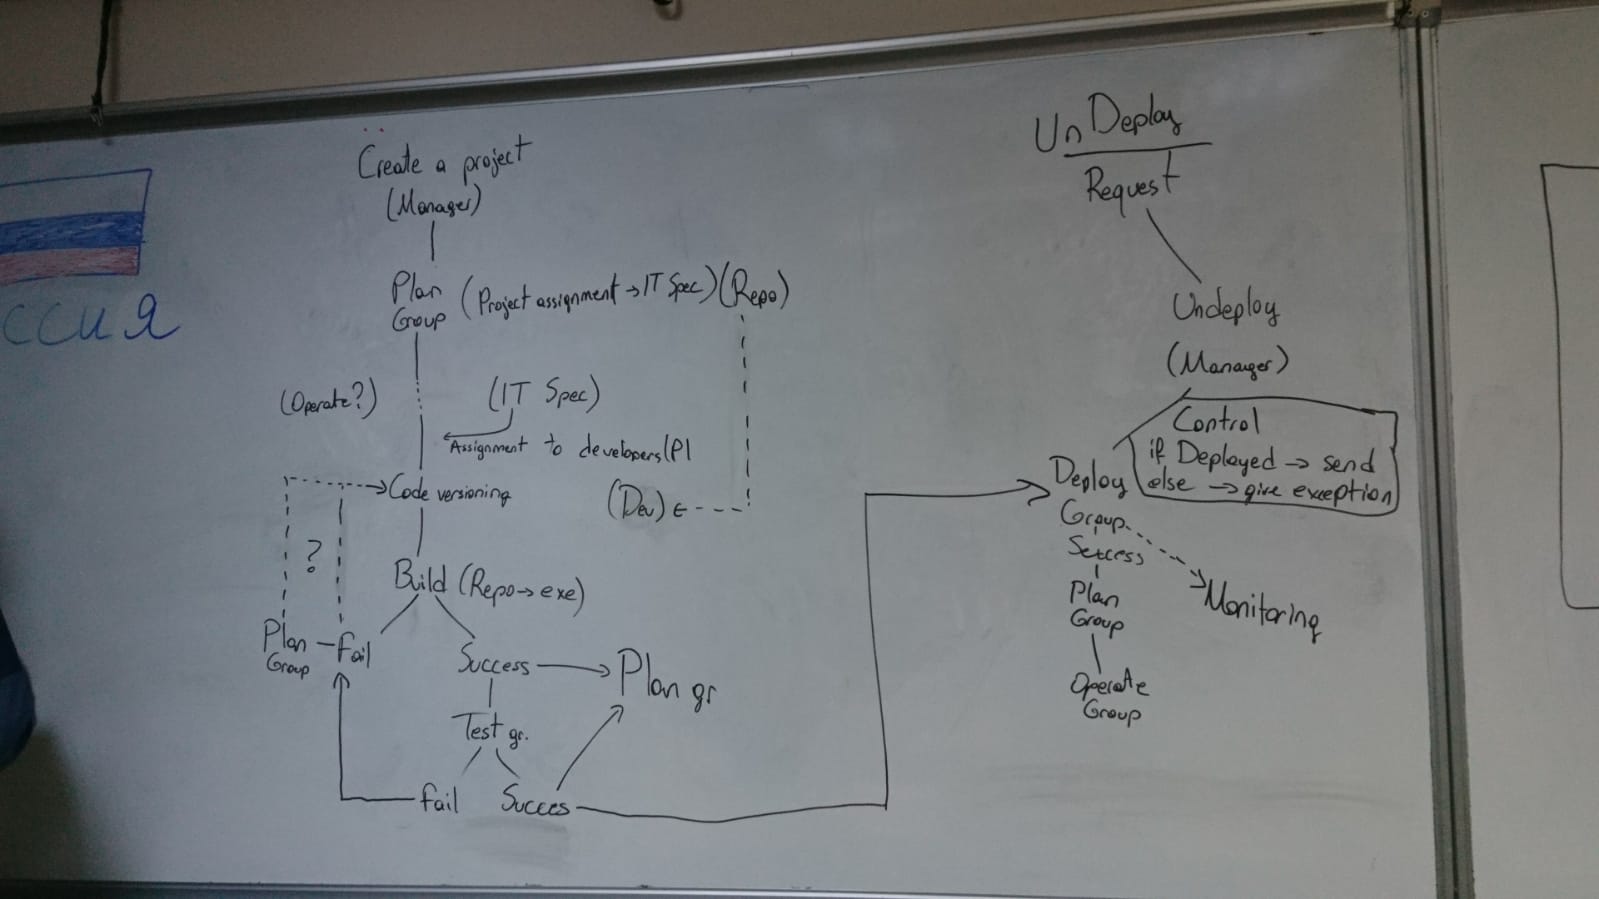 ссия
Create a project
(Manager)
Plan
Group
(Project assignment → IT Spec) (Repo)
(Operate?)
(IT Spec)
Assignment to developers (Pl
Code versioning
(Dev)
?
Build (Repo → exe)
Plan
Group
- Fail
Success
Plan gr
Test gr.
fail
Succes
UnDeploy
Request
Undeploy
(Manager)
Control
if Deployed → send
else → give exception
Deploy
Group
Plan
Group
Monitoring
Operate
Group